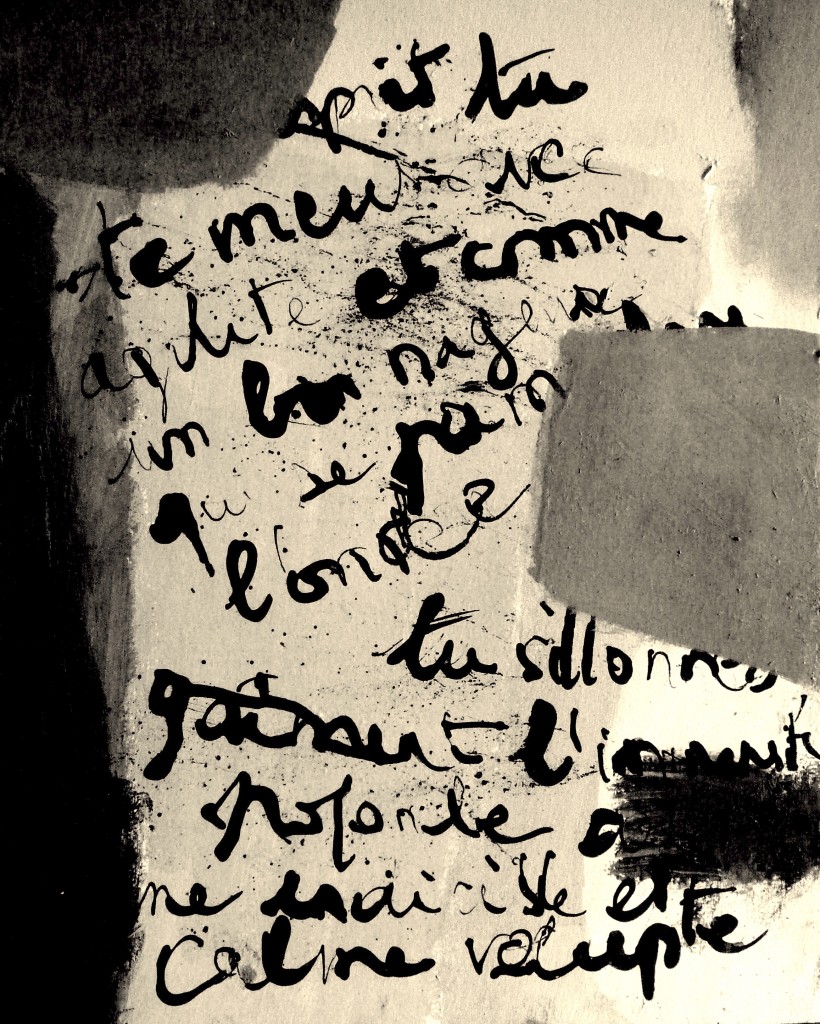 sprit tu
te meu vec
agilite et comme
un bon nageur
qui se pam
l'onde
tu sillonnes
gaiment l'immensité
profonde a
ne indicible et
calme volupte